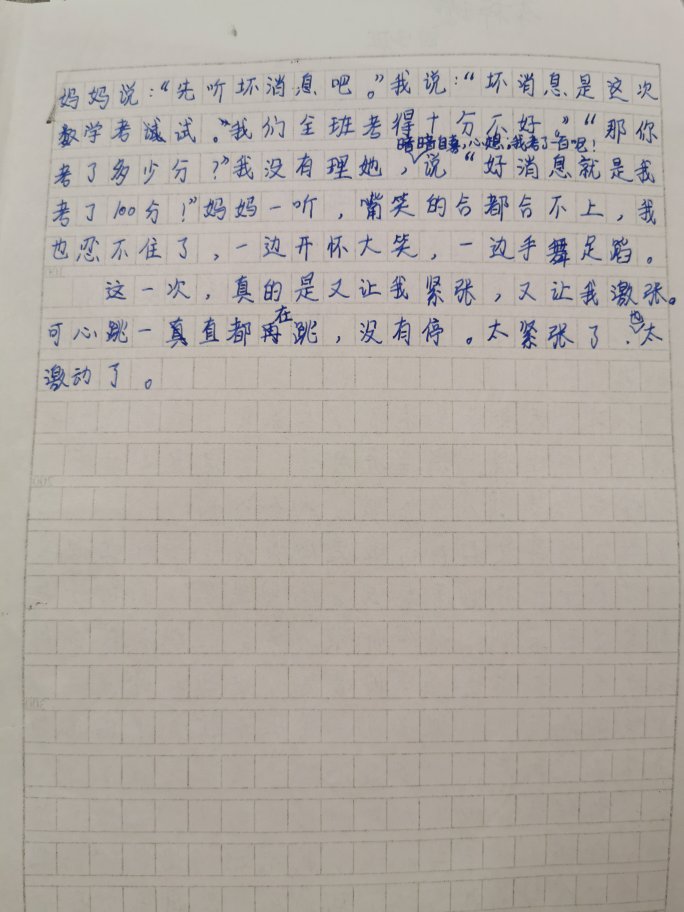 妈妈说：“先听坏消息吧。”我说：“坏消息是这次
数学考试。”“我们全班考得十分不好。”“那你
暗暗自喜，心想：我考了一百呢！
考了多少分？”我没有理她，说“好消息就是我
考了100分！”妈妈一听，嘴笑的合都合不上，我
也忍不住了，一边开怀大笑，一边手舞足蹈。
这一次，真的是又让我紧张，又让我激张。
可心跳一直都在跳，没有停。太紧张了，也太
激动了。